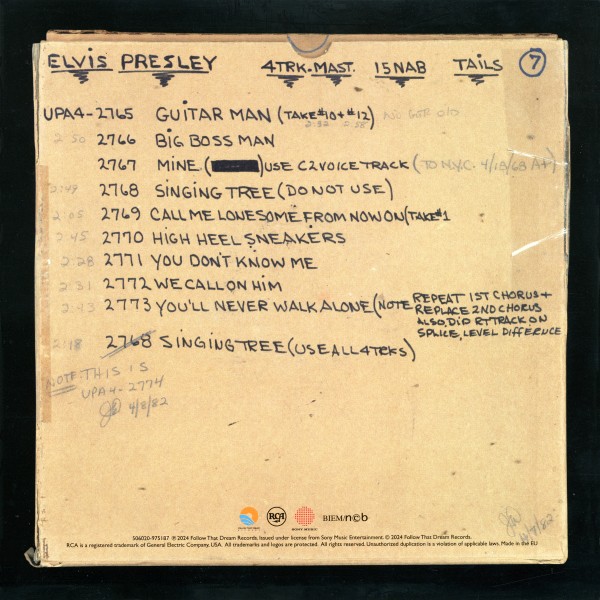 ELVIS PRESLEY 4TRK.MAST. 15NAB TAILS 7
UPA4-2765 GUITAR MAN (TAKE#10+#12)
2:32 2:58
2:50 2766 BIG BOSS MAN
2767 MINE ( ) USE C2 VOICE TRACK (TO N.Y.C. 4/18/68
2:49 2768 SINGING TREE (DO NOT USE)
2:05 2769 CALL ME LONESOME FROM NOW ON (TAKE#1
2:45 2770 HIGH HEEL SNEAKERS
2:28 2771 YOU DON'T KNOW ME
2:31 2772 WE CALL ON HIM
2:43 2773 YOU'LL NEVER WALK ALONE (NOTE REPEAT 1ST CHORUS +
REPLACE 2ND CHORUS
ALSO, DIP RT TRACK ON
SPLICE, LEVEL DIFFERENCE
2:18 2768 SINGING TREE (USE ALL 4 TRKS)
NOTE: THIS IS
UPA4-2774
4/8/82
RCA SONY MUSIC BIEM/n©b
506020-975187 ℗ 2024 Follow That Dream Records. Issued under license from Sony Music Entertainment. © 2024 Follow That Dream Records.
RCA is a registered trademark of General Electric Company, USA. All trademarks and logos are protected. All rights reserved. Unauthorized duplication is a violation of applicable laws. Made in the EU